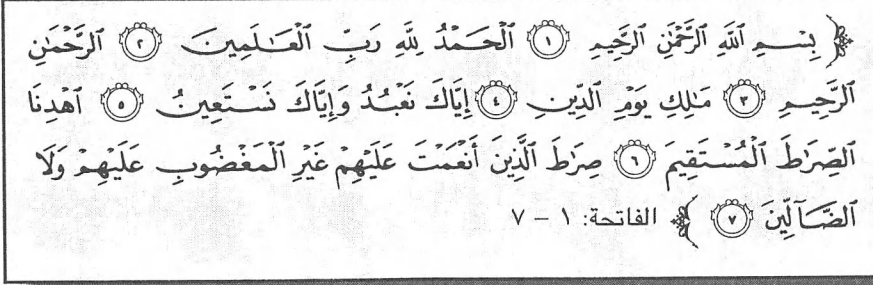 ﴿ بِسْمِ ٱللَّهِ ٱلرَّحْمَٰنِ ٱلرَّحِيمِ ۝١ ٱلْحَمْدُ لِلَّهِ رَبِّ ٱلْعَـٰلَمِينَ ۝٢ ٱلرَّحْمَٰنِ
ٱلرَّحِيمِ ۝٣ مَـٰلِكِ يَوْمِ ٱلدِّينِ ۝٤ إِيَّاكَ نَعْبُدُ وَإِيَّاكَ نَسْتَعِينُ ۝٥ ٱهْدِنَا
ٱلصِّرَٰطَ ٱلْمُسْتَقِيمَ ۝٦ صِرَٰطَ ٱلَّذِينَ أَنْعَمْتَ عَلَيْهِمْ غَيْرِ ٱلْمَغْضُوبِ عَلَيْهِمْ وَلَا
ٱلضَّآلِّينَ ۝٧ ﴾ الفاتحة: ١ – ٧